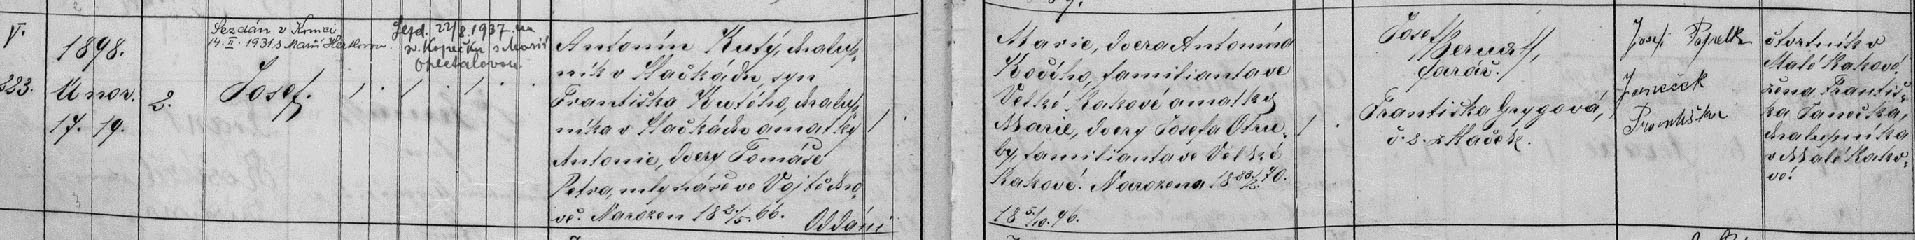 V.
1898.
383. Unor.
17. 19.
2.
Sezdán v Římě
14. II. 1931 s Marií
Josef.
Sezd. 22/8 1937 na
sv. Kopečku s Marií
Opletalovou
Antonín Kutý, chalup-
ník v Hačkách, syn
Františka Kutého, chalup-
níka v Hačkách a matky
Antonie, dcery Tomáše
Petra, mlynáře ve Vojtěcho-
vě. Narozen 18 2/5 66.
Oddáni
Marie, dcera Antonína
Kočího, familianta ve
Velké Rakové a matky
Marie, dcery Josefa Otru-
by, familianta ve Velké
Rakové. Narozena 18 70.
18 5/10. 96.
Josef
farář.
Františka Grygová,
z Haček.
Josef Popelk
Janeček
František
čtvrtník v
Malé Rakové,
žena Františ-
ka Janečka,
chalupníka
v Malé Rako-
vé.